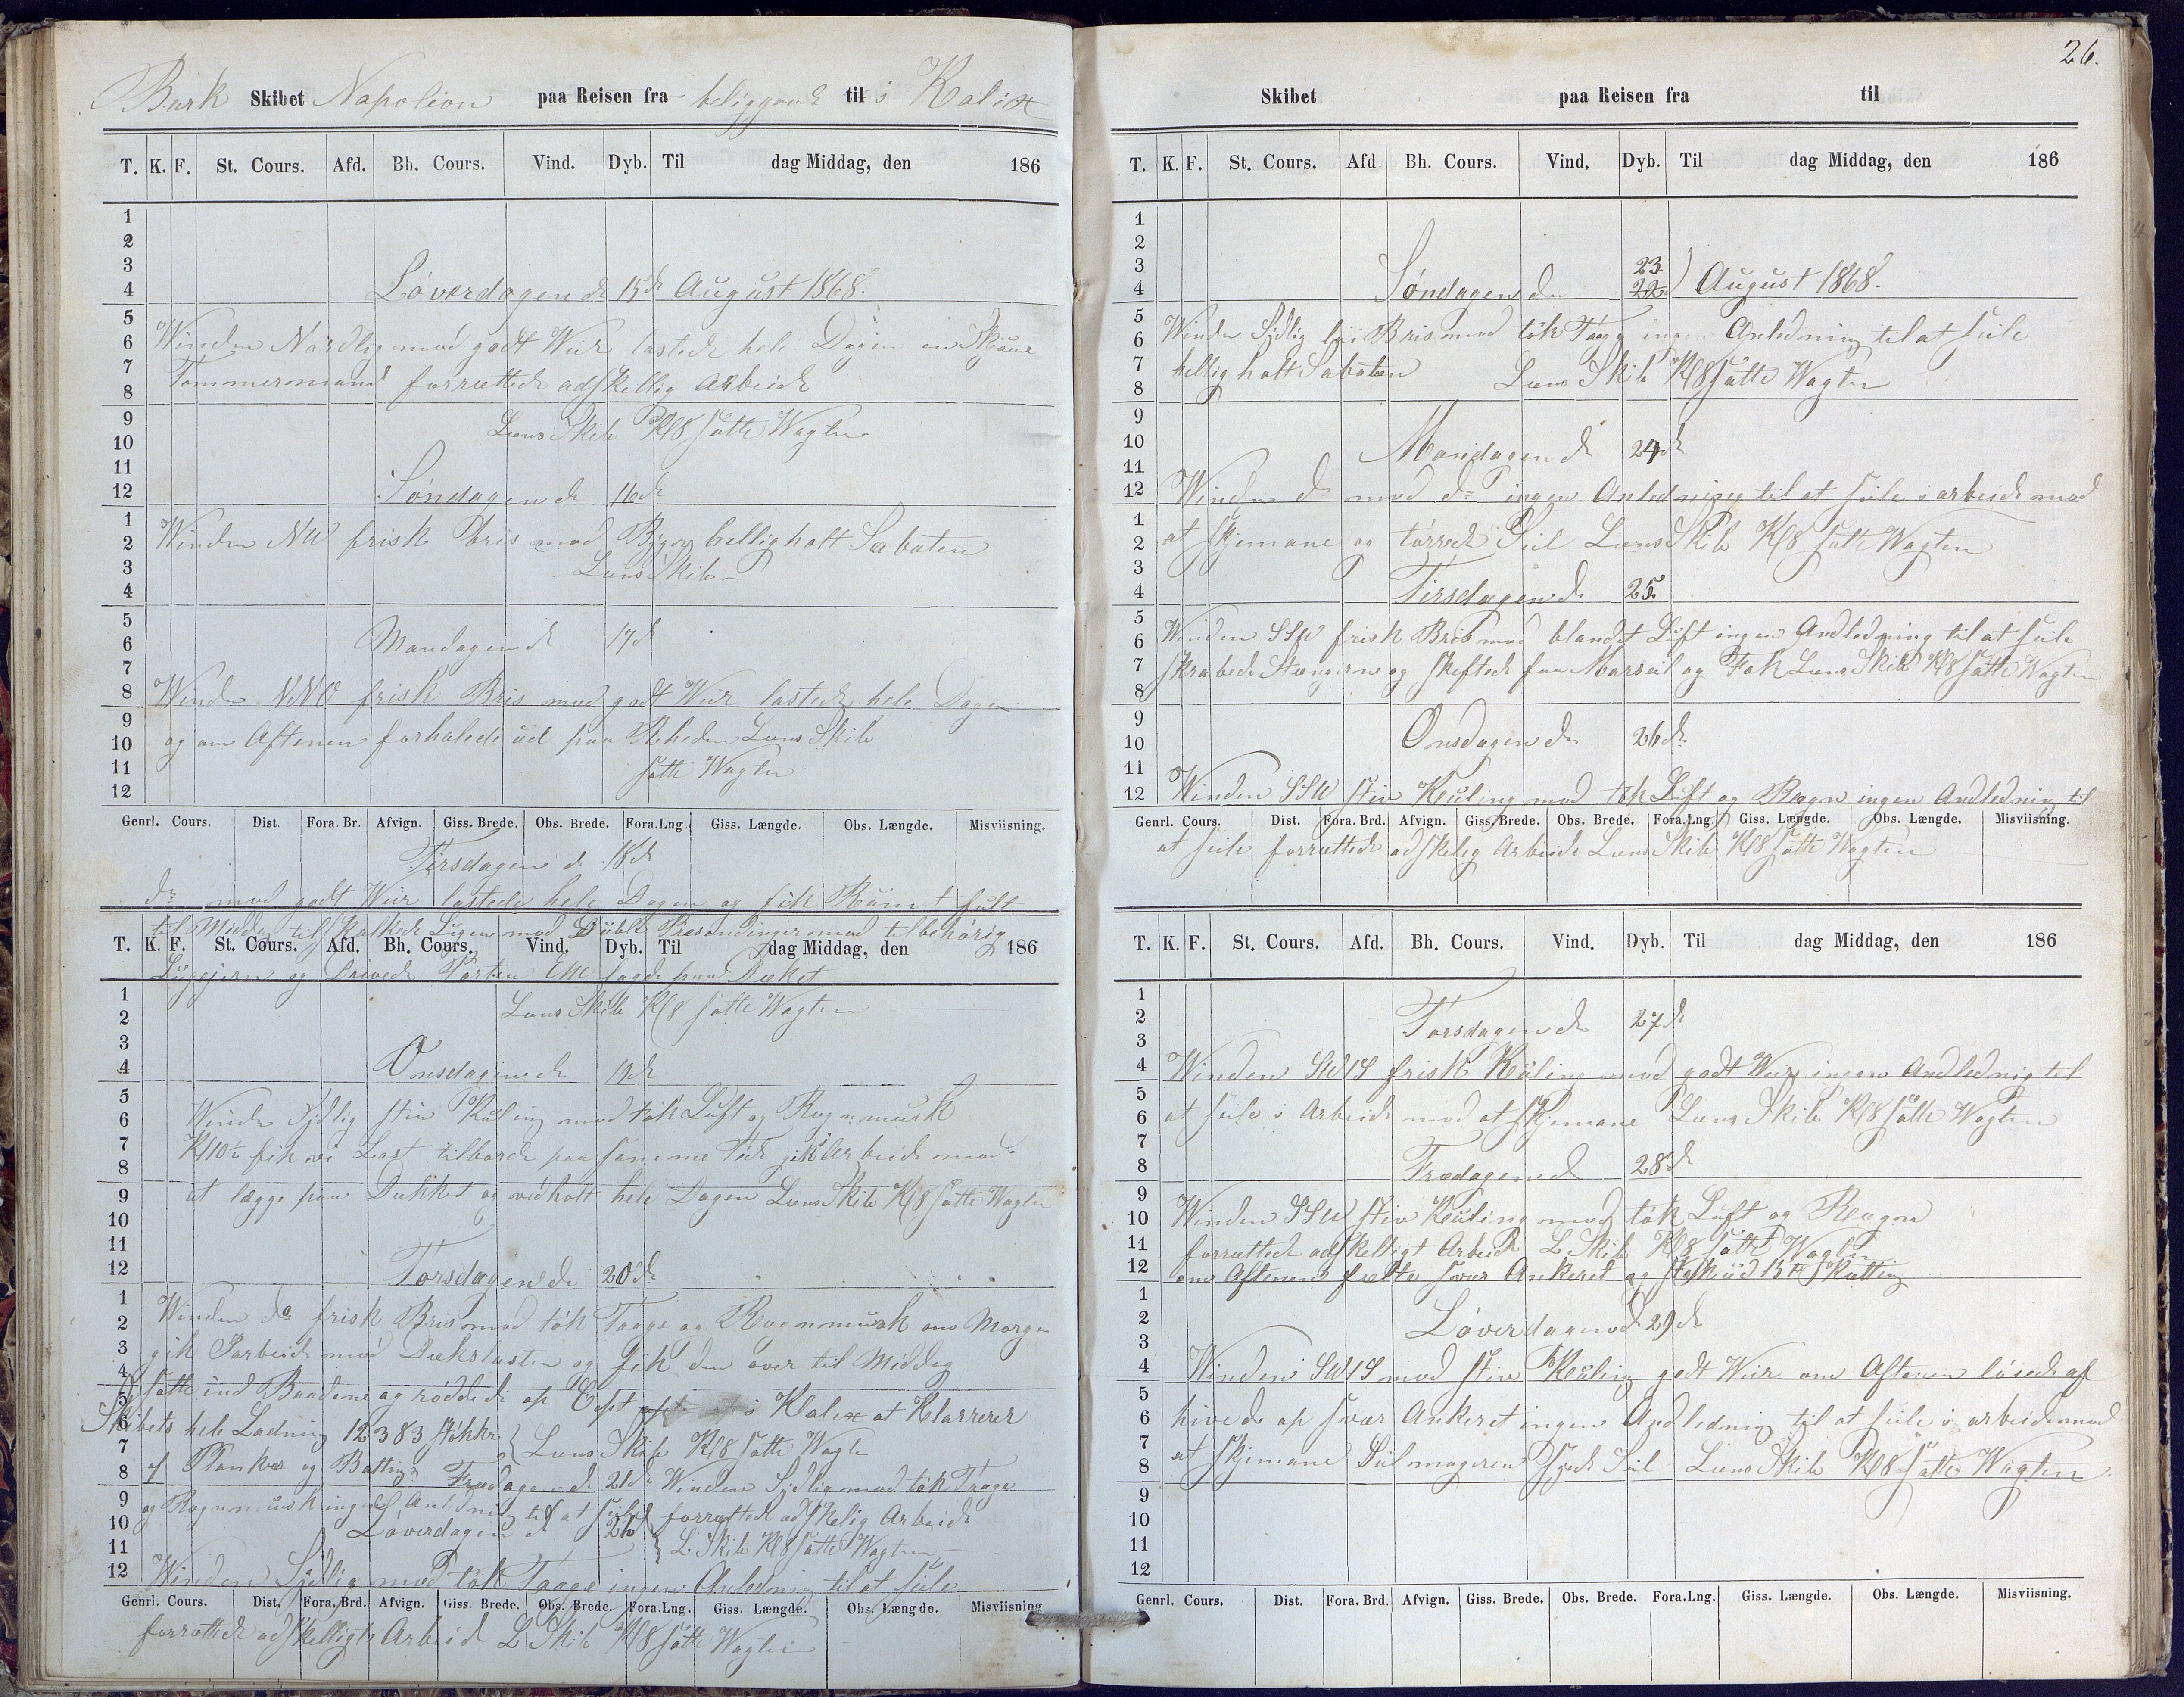 Bark Skibet Napoleon paa Reisen fra beliggende til i Kalix
T. K. F. St. Cours. Afd. Bh. Cours. Vind. Dyb. Til dag Middag, den 186
1
2
3
4 Løverdagen d 15d August 1868.
5
6 Winden Nardlig med godt Weir lastede hele Dagen en
7
8 Tømmermand forrettede adskellig Arbeide
9
10 Lens Skib Kl 8 satte Wagten
11
12 Søndagen d 16d
1
2 Winden NW frisk Bris med helligholt Sabaten
3 Lens Skib
4
5
6 Mandagen d 17d
7
8 Winden NNO frisk Bris med godt Weir lastede hele Dagen
9
10 og om Aftenen forhalede ud paa Rheden Lens Skib
11 satte Wagten
12
Genrl. Cours. Dist. Fora. Br. Afvign. Giss. Brede. Obs. Brede. Fora.Lng. Giss. Længde. Obs. Længde. Misviisning.
Tirsdagen d 18d
do med godt Weir lastede hele Dagen og fik Rumet fult
til Middag Lugen med Duble Presendinger med tilbehørig
T. K. F. St. Cours. Afd. Bh. Cours. Vind. Dyb. Til dag Middag, den 186
Lugejern og Porten paa Dæket
1
2 Lens Skib Kl 8 satte Wagten
3
4 Onsdagen d 19d
5
6 Winden Sydlig stiv Kuling med tök Luft og Regnmusk
7 Kl 10½ fik vi Last tilborde paa samme Tid gik i Arbeide med
8
9 at lægge paa Dækket og vedholt hele Dagen Lens Skib Kl 8 satte Wagten
10
11
12 Torsdagen d 20d
1
2 Winden do frisk Bris med tök Taage og Regnmusk om Morgen
3 gik i arbeide med Dækslasten og fik den over til Middag
4
5 satte ind Baadene og røddede op Capt i Kalix at Klarrerer
6 Skibets hele Ladning 12383 støkker
7 Lens Skib Kl 8 satte Wagten
8 af Planker og Battings Fredagen d 21d Winden Sydlig med tök Taage
9 og Regnmusk ingen Anledning til at seile forrettede adskelig Arbeide
10 Løverdagen d
11 L. Skib Kl 8 satte Wagten
12 Winden Sydlig med tök Taage ingen Anledning til at seile
Genrl. Cours. Dist. Fora. Brd. Afvign. Giss. Brede. Obs. Brede. Fora.Lng. Giss. Længde. Obs. Længde. Misviisning
forrettede adskelligt Arbeid L Skib Kl 8 satte Wagten
26.
Skibet paa Reisen fra til
T. K. F. St. Cours. Afd. Bh. Cours. Vind. Dyb. Til dag Middag, den 186
1
2
3 23
4 Søndagen d 22 August 1868.
5
6 Winden Sydlig løi Bris med tök Taage ingen Anledning til at seile
7 helligholt Sabaten Lens Skib Kl 8 satte Wagten
8
9
10 Mandagen d 24d
11
12 Winden do med do ingen Anledning til at seile i arbeide med
1
2 at skjemane og tørrede Seil Lens Skib Kl 8 satte Wagten
3
4 Tirsdagen d 25.
5
6 Winden SSW frisk Bris med blandet Luft ingen Andledning til at seile
7 skrabede Stængerne og skeftede for Marseil og Fok Lens Skib Kl 8 satte Wagten
8
9
10 Onsdagen d 26d
11
12 Winden SSW stiv Keuling med tök Luft og Regn ingen Andledning til
Genrl. Cours. Dist. Fora. Brd. Afvign. Giss. Brede. Obs. Brede. Fora.Lng. Giss. Længde. Obs. Længde. Misviisning.
at seile forrettede adskelig Arbeide Lens Skib Kl 8 satte Wagten
T. K. F. St. Cours. Afd. Bh. Cours. Vind. Dyb. Til dag Middag, den 186
1
2 Torsdagen d 27d
3
4 Winden SWtS frisk Keuling med godt Weir ingen Andledning til
5
6 at seile i Arbeide med at skjemane Lens Skib Kl 8 satte Wagten
7
8 Fredagen d 28d
9
10 Winden SSW stiv Keuling med tök Luft og Regn
11 forrettede adskelligt Arbeid L Skib Kl 8 satte Wagten
12 om Aftenen fælte svær Ankeret og stak ud 15 F Kætting
1
2 Løverdagen d 29d
3
4 Winden SWtS med stiv Keuling godt Weir om Aftenen løiede af
5
6 hivede op svær Ankeret ingen Andledning til at seile i arbeide med
7
8 at skjemane Seilmageren syede Seil Lens Skib Kl 8 satte Wagten
9
10
11
12
Genrl. Cours. Dist. Fora. Brd. Afvign. Giss. Brede. Obs. Brede. Fora.Lng. Giss. Længde. Obs. Længde. Misviisning.